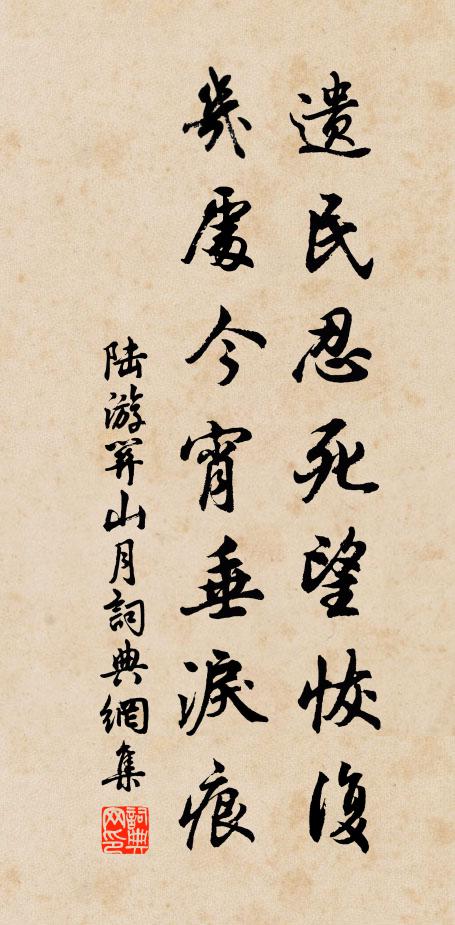 遺民忍死望恢復
幾處今宵垂淚痕
陸游關山月詞典網集
詞典網印